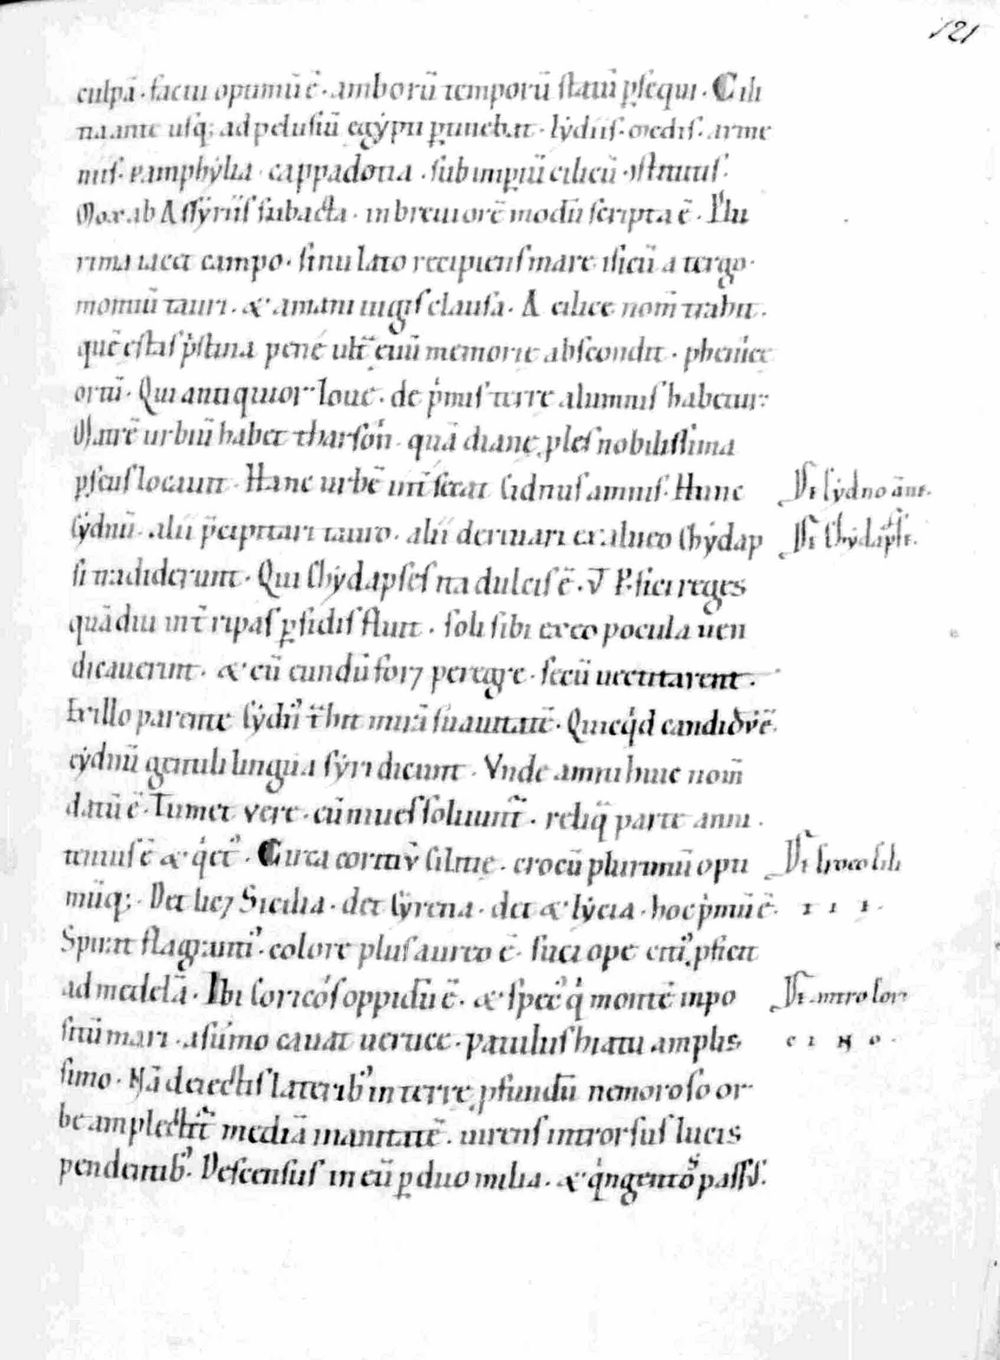 121
culpā · factu optimū ē · amborū temporū statū p̱sequi · Cili
na ante usq; ad pelusiū egẏpti p̱tinebat · lẏdiis · medis · arme
niis · Pamphẏlia · cappadotia · sub imp̱iū cilicū ↄstitutis ·
Mox ab Assẏriis subacta · in breuiorē modū scripta ē · Plu
rima iacet campo · sinu lato recipiens mare isicū a tergo ·
montiū tauri · & amani iugis clausa · A cilice nom̄ trahit ·
quē ętas p̓stina pene ult̄ ęuū memorie abscondit · phenice
ortū · Qui antiquior Ioue · de p̓mis terre alumnis habetur ·
Matrē urbiū habet tharson · quā dianę ꝓles nobilissima
p̱seus locauit · Hanc urbē int̄secat Cidnus amnis · Hunc
Cẏdnū · alii p̄cipitari tauro · alii deriuari ex alueo Chẏdap
si tradiderunt · Qui Chẏdapses ita dulcis ē · ut P̱sici reges
quādiu int̄ ripas p̱sidis fluit · soli sibi ex eo pocula uen
dicauerint · & cū eundū foret peregre · secū uectitarent ·
Ex illo parente Cẏdn᷒ t̄hit mirā suauitatē · Quicq̓d candidū ē ·
cẏdnū gentili lingua sẏri dicunt · Vnde amni huic nom̄
datū ē · Tumet vere · cū niues soluunt̄ · reliq̄ parte anni ·
tenuis ē & q̓et᷒ · Circa coritiū Cilicie · crocū plurimū opti
mūq; · Det licet Sicilia · det Cẏrena · det & lẏcia · hoc p̓mū ē ·
Spirat flagranti᷒ · colore plus aureo ē · suci ope citi᷒ ꝓficit
ad medelā · Ibi Coricos oppidū ē · & spec᷒ q̓ montē inpo
sitū mari · a sūmo cauat uertice · patulus hiatu amplis
simo · Nā deiectis laterib᷒ in terrę ꝓfundū nemoroso or
be amplectit̄ mediā inanitatē · uirens introrsus lucis
pendentib᷒ · Descensus in eū p̱ duo milia · & q̓ngentos passus ·
De Cẏdno āne ·
De Chẏdapse ·
De Croco Cili
tii ·
De antro Cori
cino ·